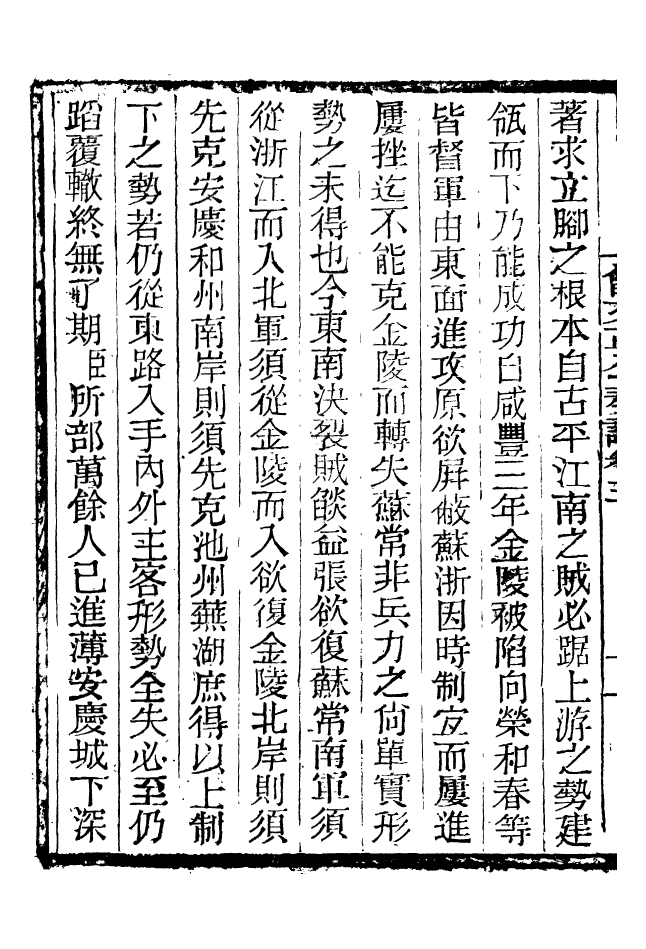 著求立腳之根本自古平江南之賊必踞上游之勢建
瓴而下乃能成功自咸豐三年金陵被陷向榮和春等
皆督軍由東面進攻原欲屏蔽蘇浙因時制宜而屢進
屢挫迄不能克金陵而轉失蘇常非兵力之尙單實形
勢之未得也今東南決裂賊燄益張欲復蘇常南軍須
從浙江而入北軍須從金陵而入欲復金陵北岸則須
先克安慶和州南岸則須先克池州蕪湖庶得以上制
下之勢若仍從東路入手內外主客形勢全失必至仍
蹈覆轍終無了期臣所部萬餘人已進薄安慶城下深